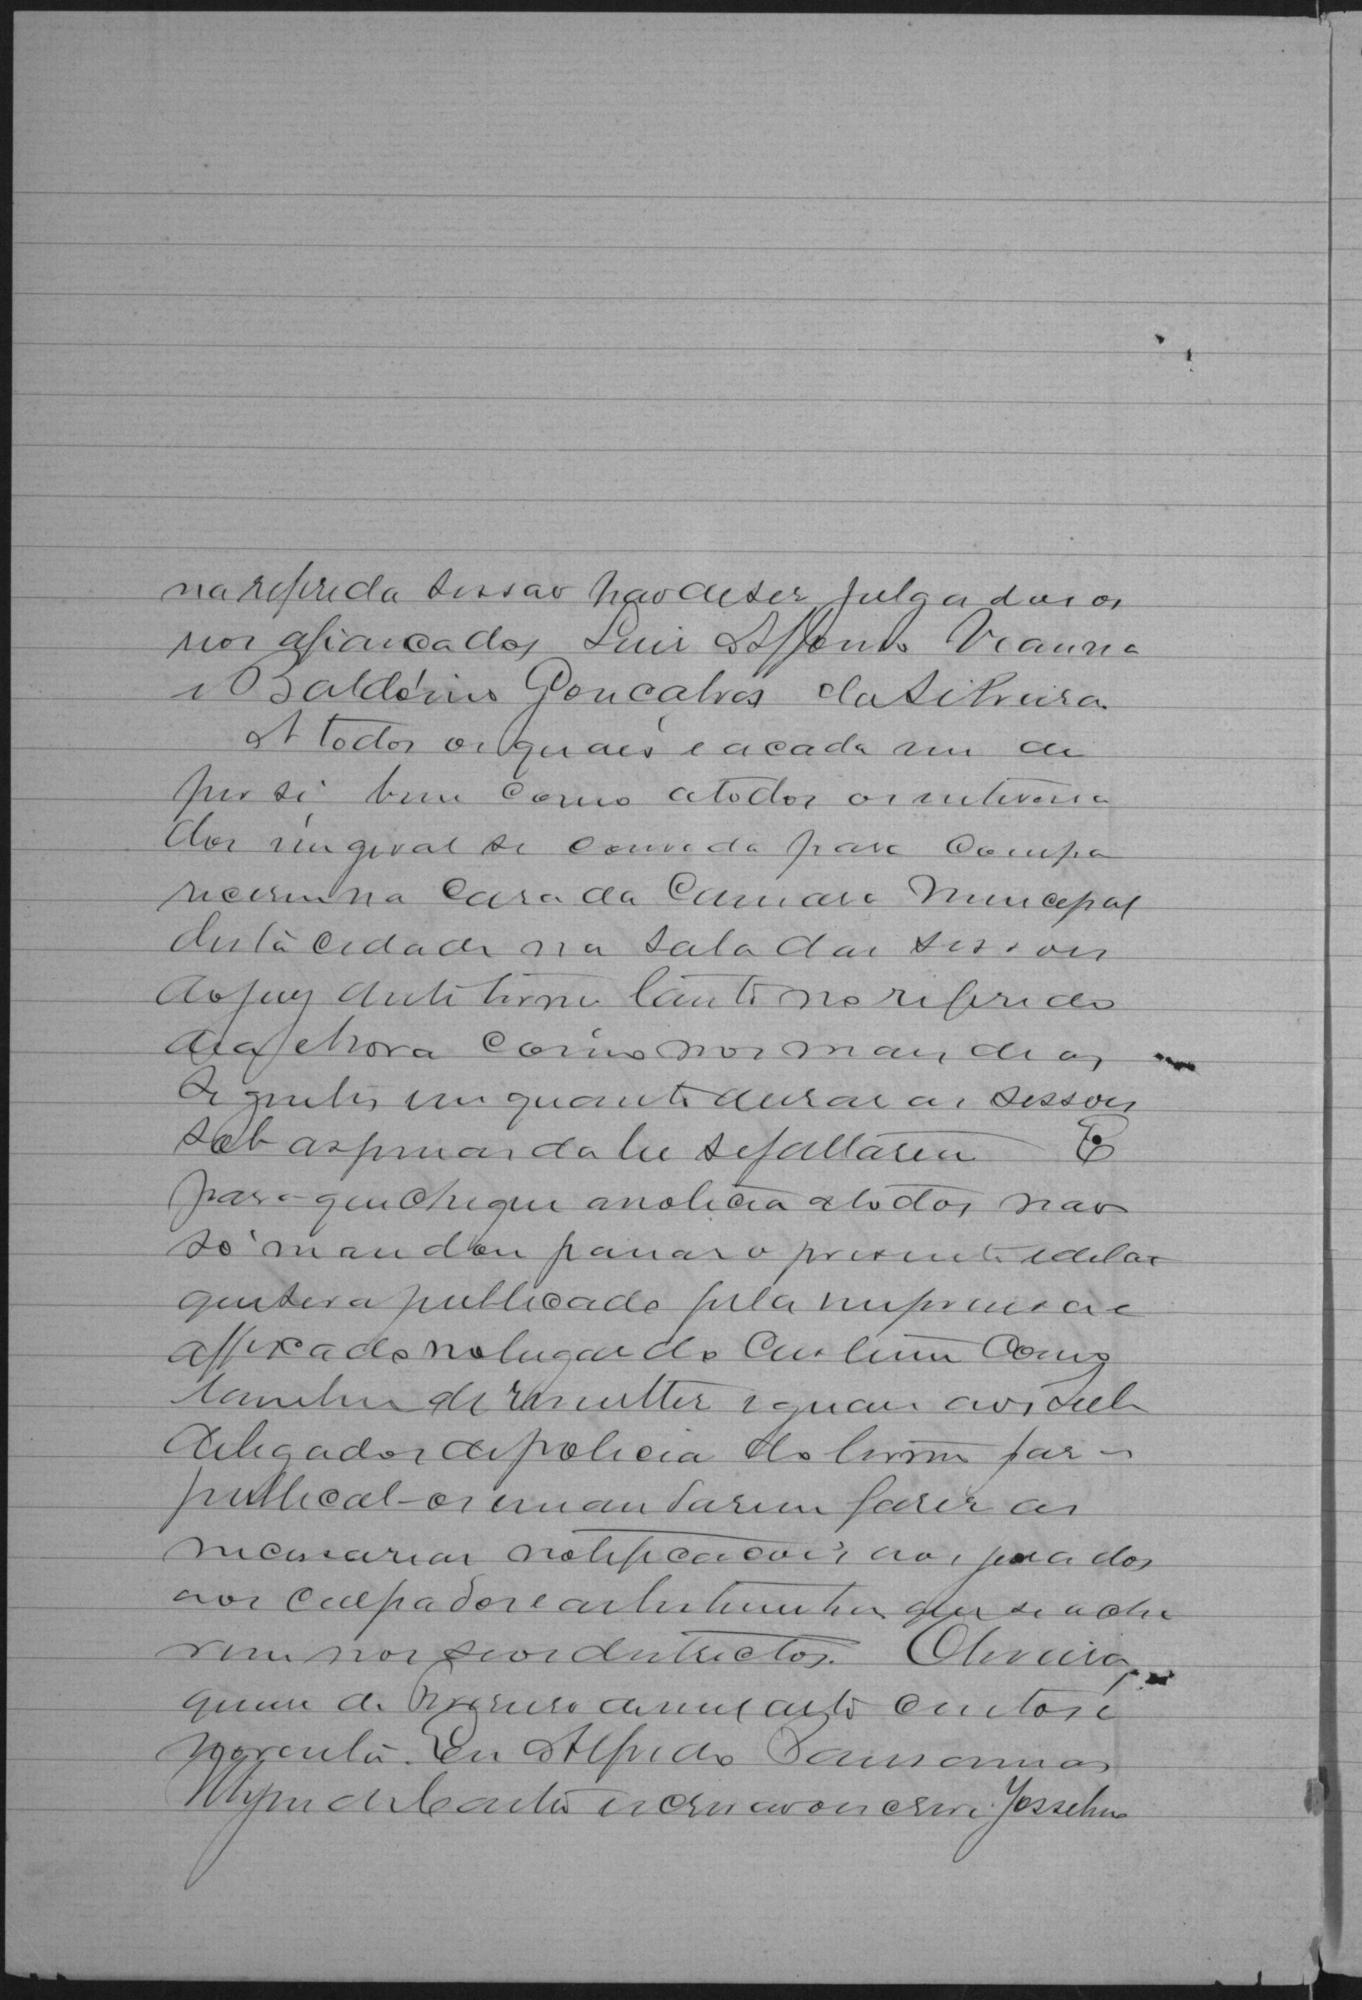 na referida sessão hão de ser julgados os
reos afiancados Luis Affonso Vianna
e Baldoino Goncalves da Silveira.
A todos os quaes e a cada um de
per si bem como a todos os interessa
dos em geral se convida para compa
recerem na Casa da Camara Municipal
desta cidade na sala das sessoes
do jury deste termo tanto no referido
dia e hora como nos mais dias
seguintes em quanto durar as sessoes
sob as penas da lei se faltarem E
para que chegue a noticia a todos não
só mandou passar o presente edital
que sera publicado pela imprensa e
affixado no lugar do custume como
tambem de remetter iguaes aos sub
delegados de policia do termo para
publical-os e mandarem fazer as
necessarias notificacoes aos jurados
aos culpados e as testimunhas que se acha
rem nos seos districtos. Oliveira,
quinze de Março de mil oito centos e
noventa. Eu Alfredo
de Castro escrivão o escrevi. Josselino